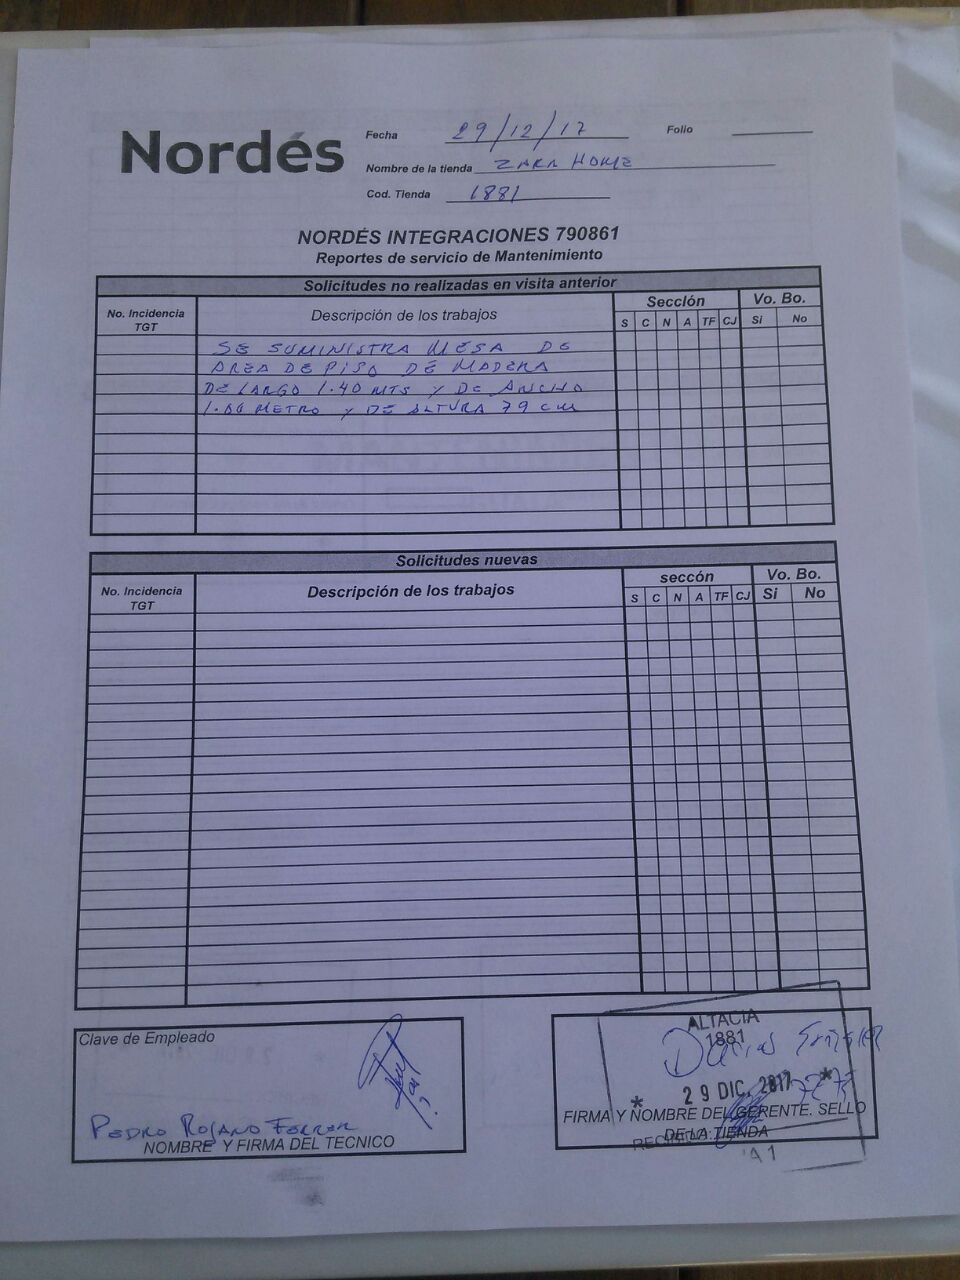 Nordés
Fecha 29/12/17 Folio
Nombre de la tienda ZARA HOME
Cod. Tienda 1881
NORDÉS INTEGRACIONES 790861
Reportes de servicio de Mantenimiento
Solicitudes no realizadas en visita anterior
No. Incidencia TGT Descripción de los trabajos Sección Vo. Bo.
S C N A TF CJ Si No
SE SUMINISTRA MESA DE
AREA DE PISO DE MADERA
DE LARGO 1.40 MTS Y DE ANCHO
1.00 METRO Y DE ALTURA 79 CM
Solicitudes nuevas
No. Incidencia TGT Descripción de los trabajos seccón Vo. Bo.
S C N A TF CJ Si No
Clave de Empleado
PEDRO ROJANO FERRER
NOMBRE Y FIRMA DEL TECNICO
ALTACIA
1881
29 DIC. 2017
FIRMA Y NOMBRE DEL GERENTE. SELLO
DE LA TIENDA